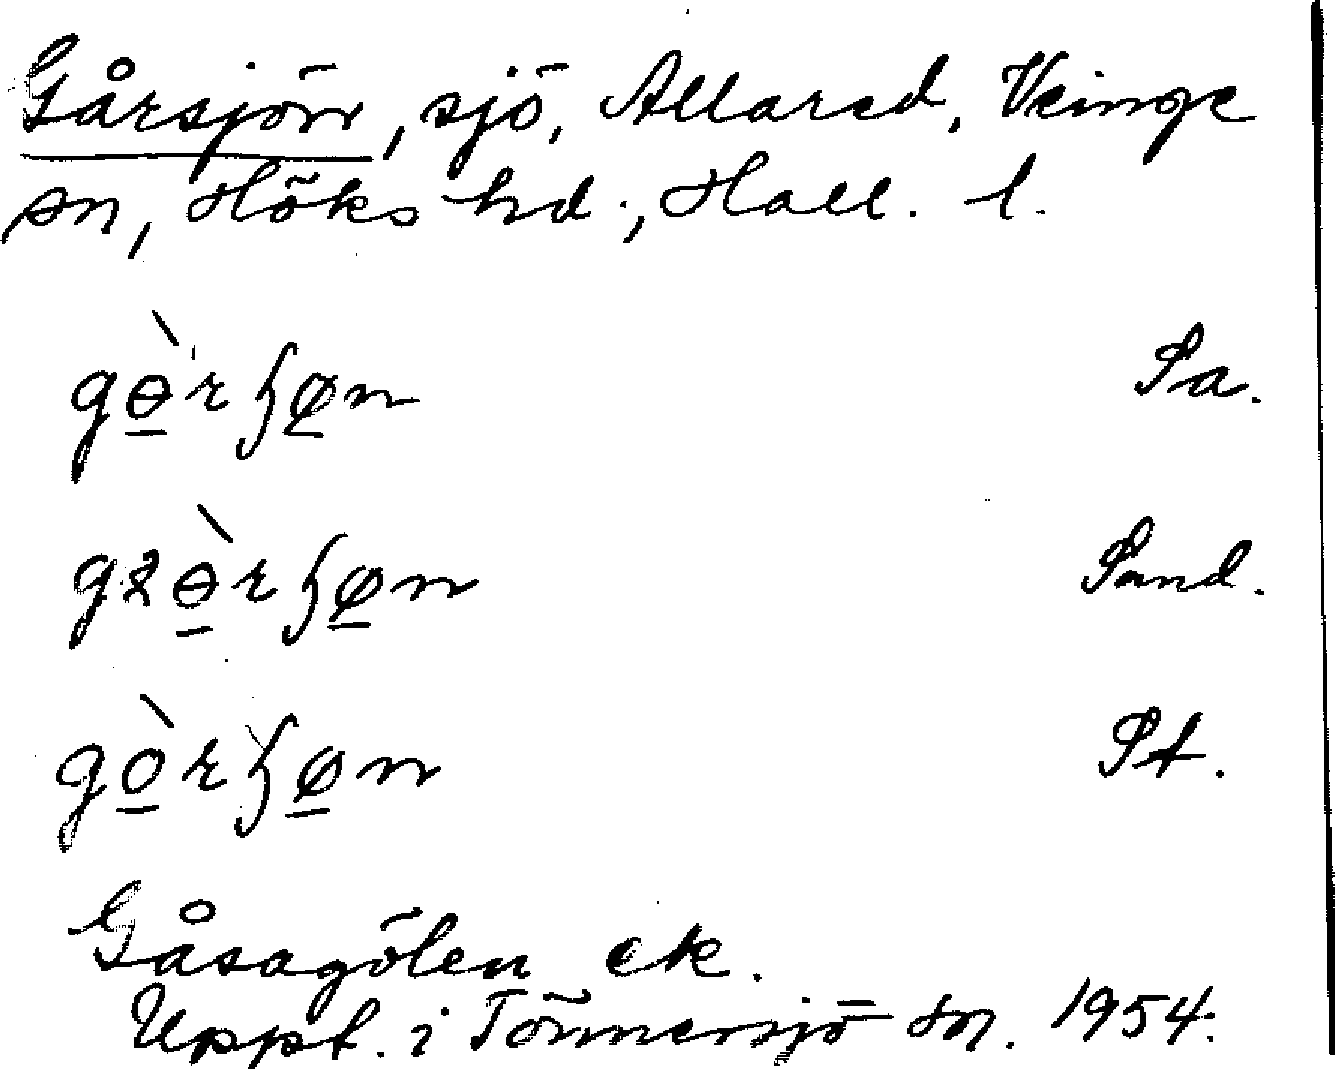 Gårsjön, sjö, Allared, Veinge
sn, Höks hd., Hall. l.
gɵ̲̀rʃø̲n Sa.
gɵ̲̀rʃø̲n Sand.
gò̲rʃø̲n St.
Gåsagölen ek.
Uppt. i Tönnersjö sn. 1954.